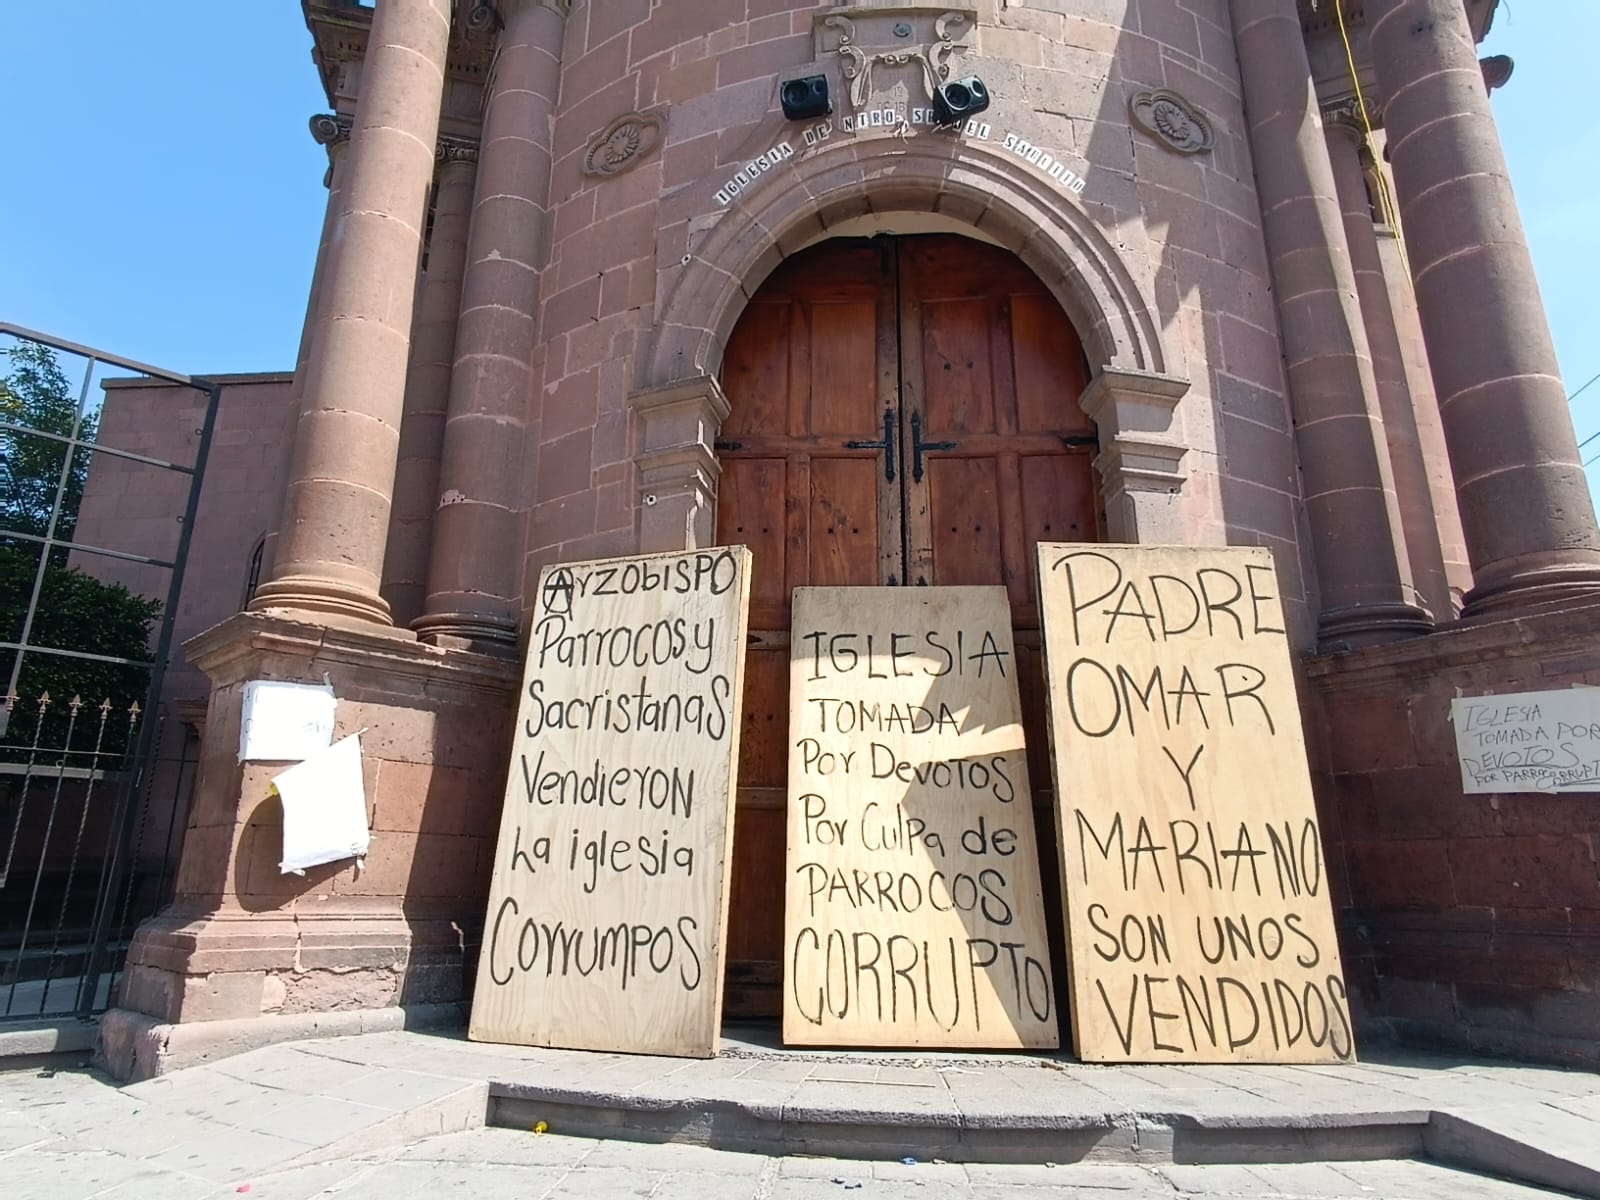 IGLESIA DE NTRO. SR. DEL SAUCITO
ArzobisPO
Parrocos y
SacristanaS
VendieroN
La iglesia
CorrumPOS
IGLESIA
TOMADA
Por DevoTOS
Por CulPa de
PARROCOS
CORRUPTO
PADRE
OMAR
Y
MARIANO
SON UNOS
VENDIDOS
IGLESIA
TOMADA POR
DEVOTOS
POR PARROCO